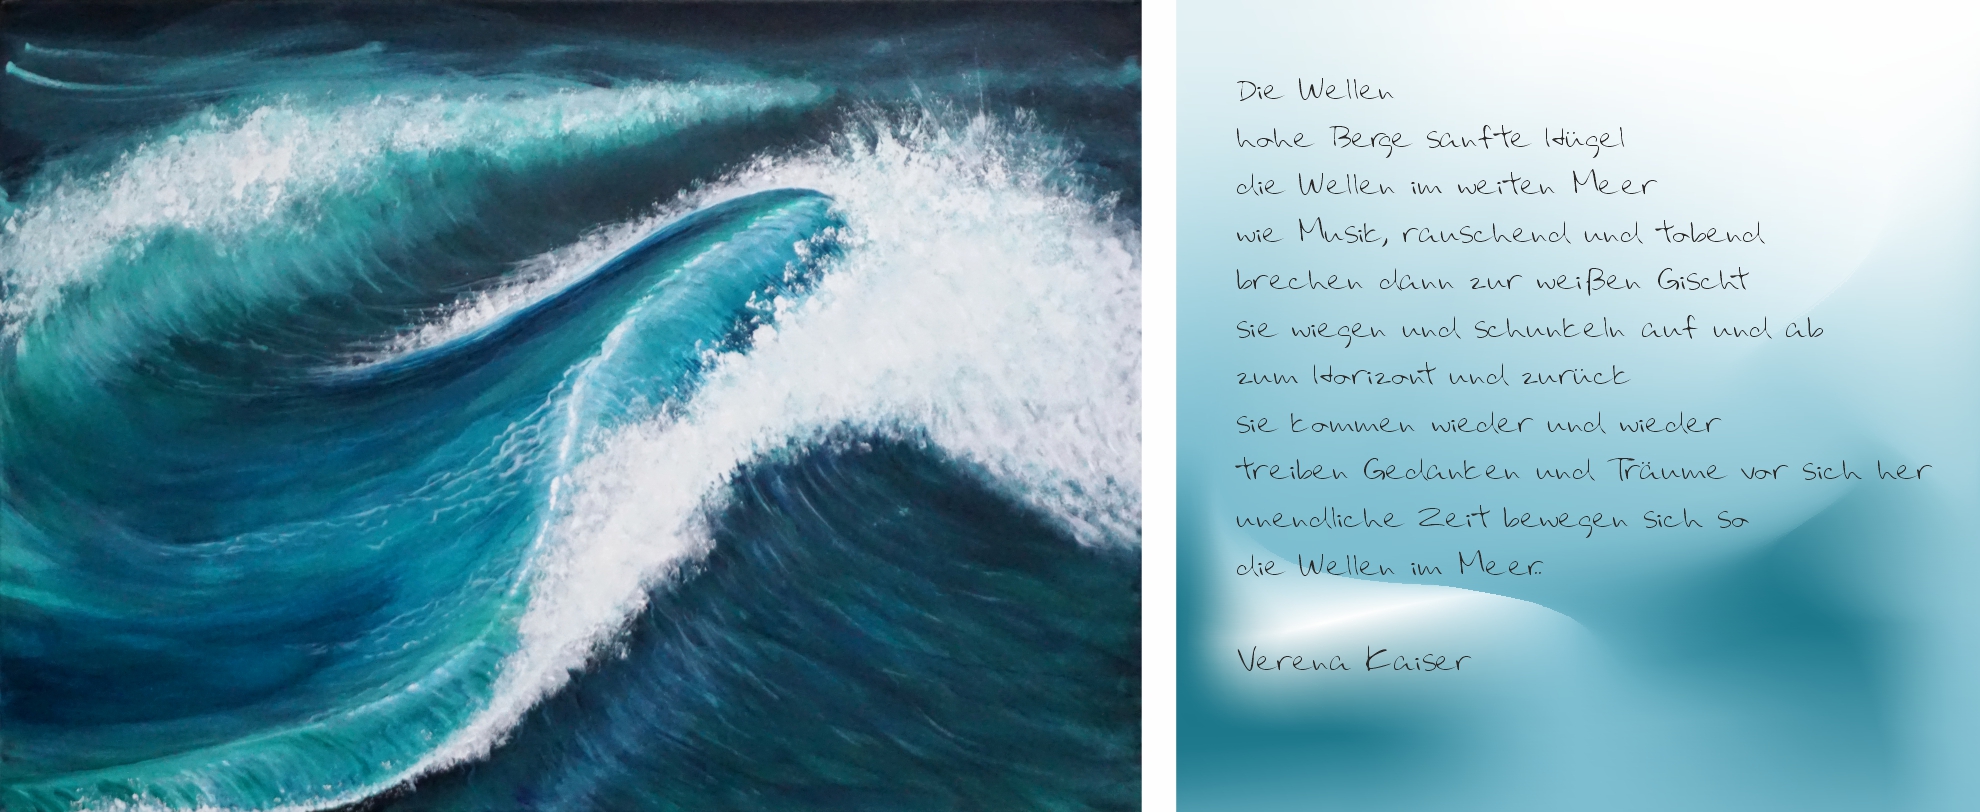 Die Wellen
hohe Berge sanfte Hügel
die Wellen im weiten Meer
wie Musik, rauschend und tobend
brechen dann zur weißen Gischt
sie wiegen und schunkeln auf und ab
zum Horizont und zurück
sie kommen wieder und wieder
treiben Gedanken und Träume vor sich her
unendliche Zeit bewegen sich so
die Wellen im Meer..
Verena Kaiser